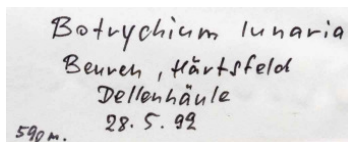 Botrychium lunaria
Beuren, Härtsfeld
Dellenhäule
28.5.92
590 m.